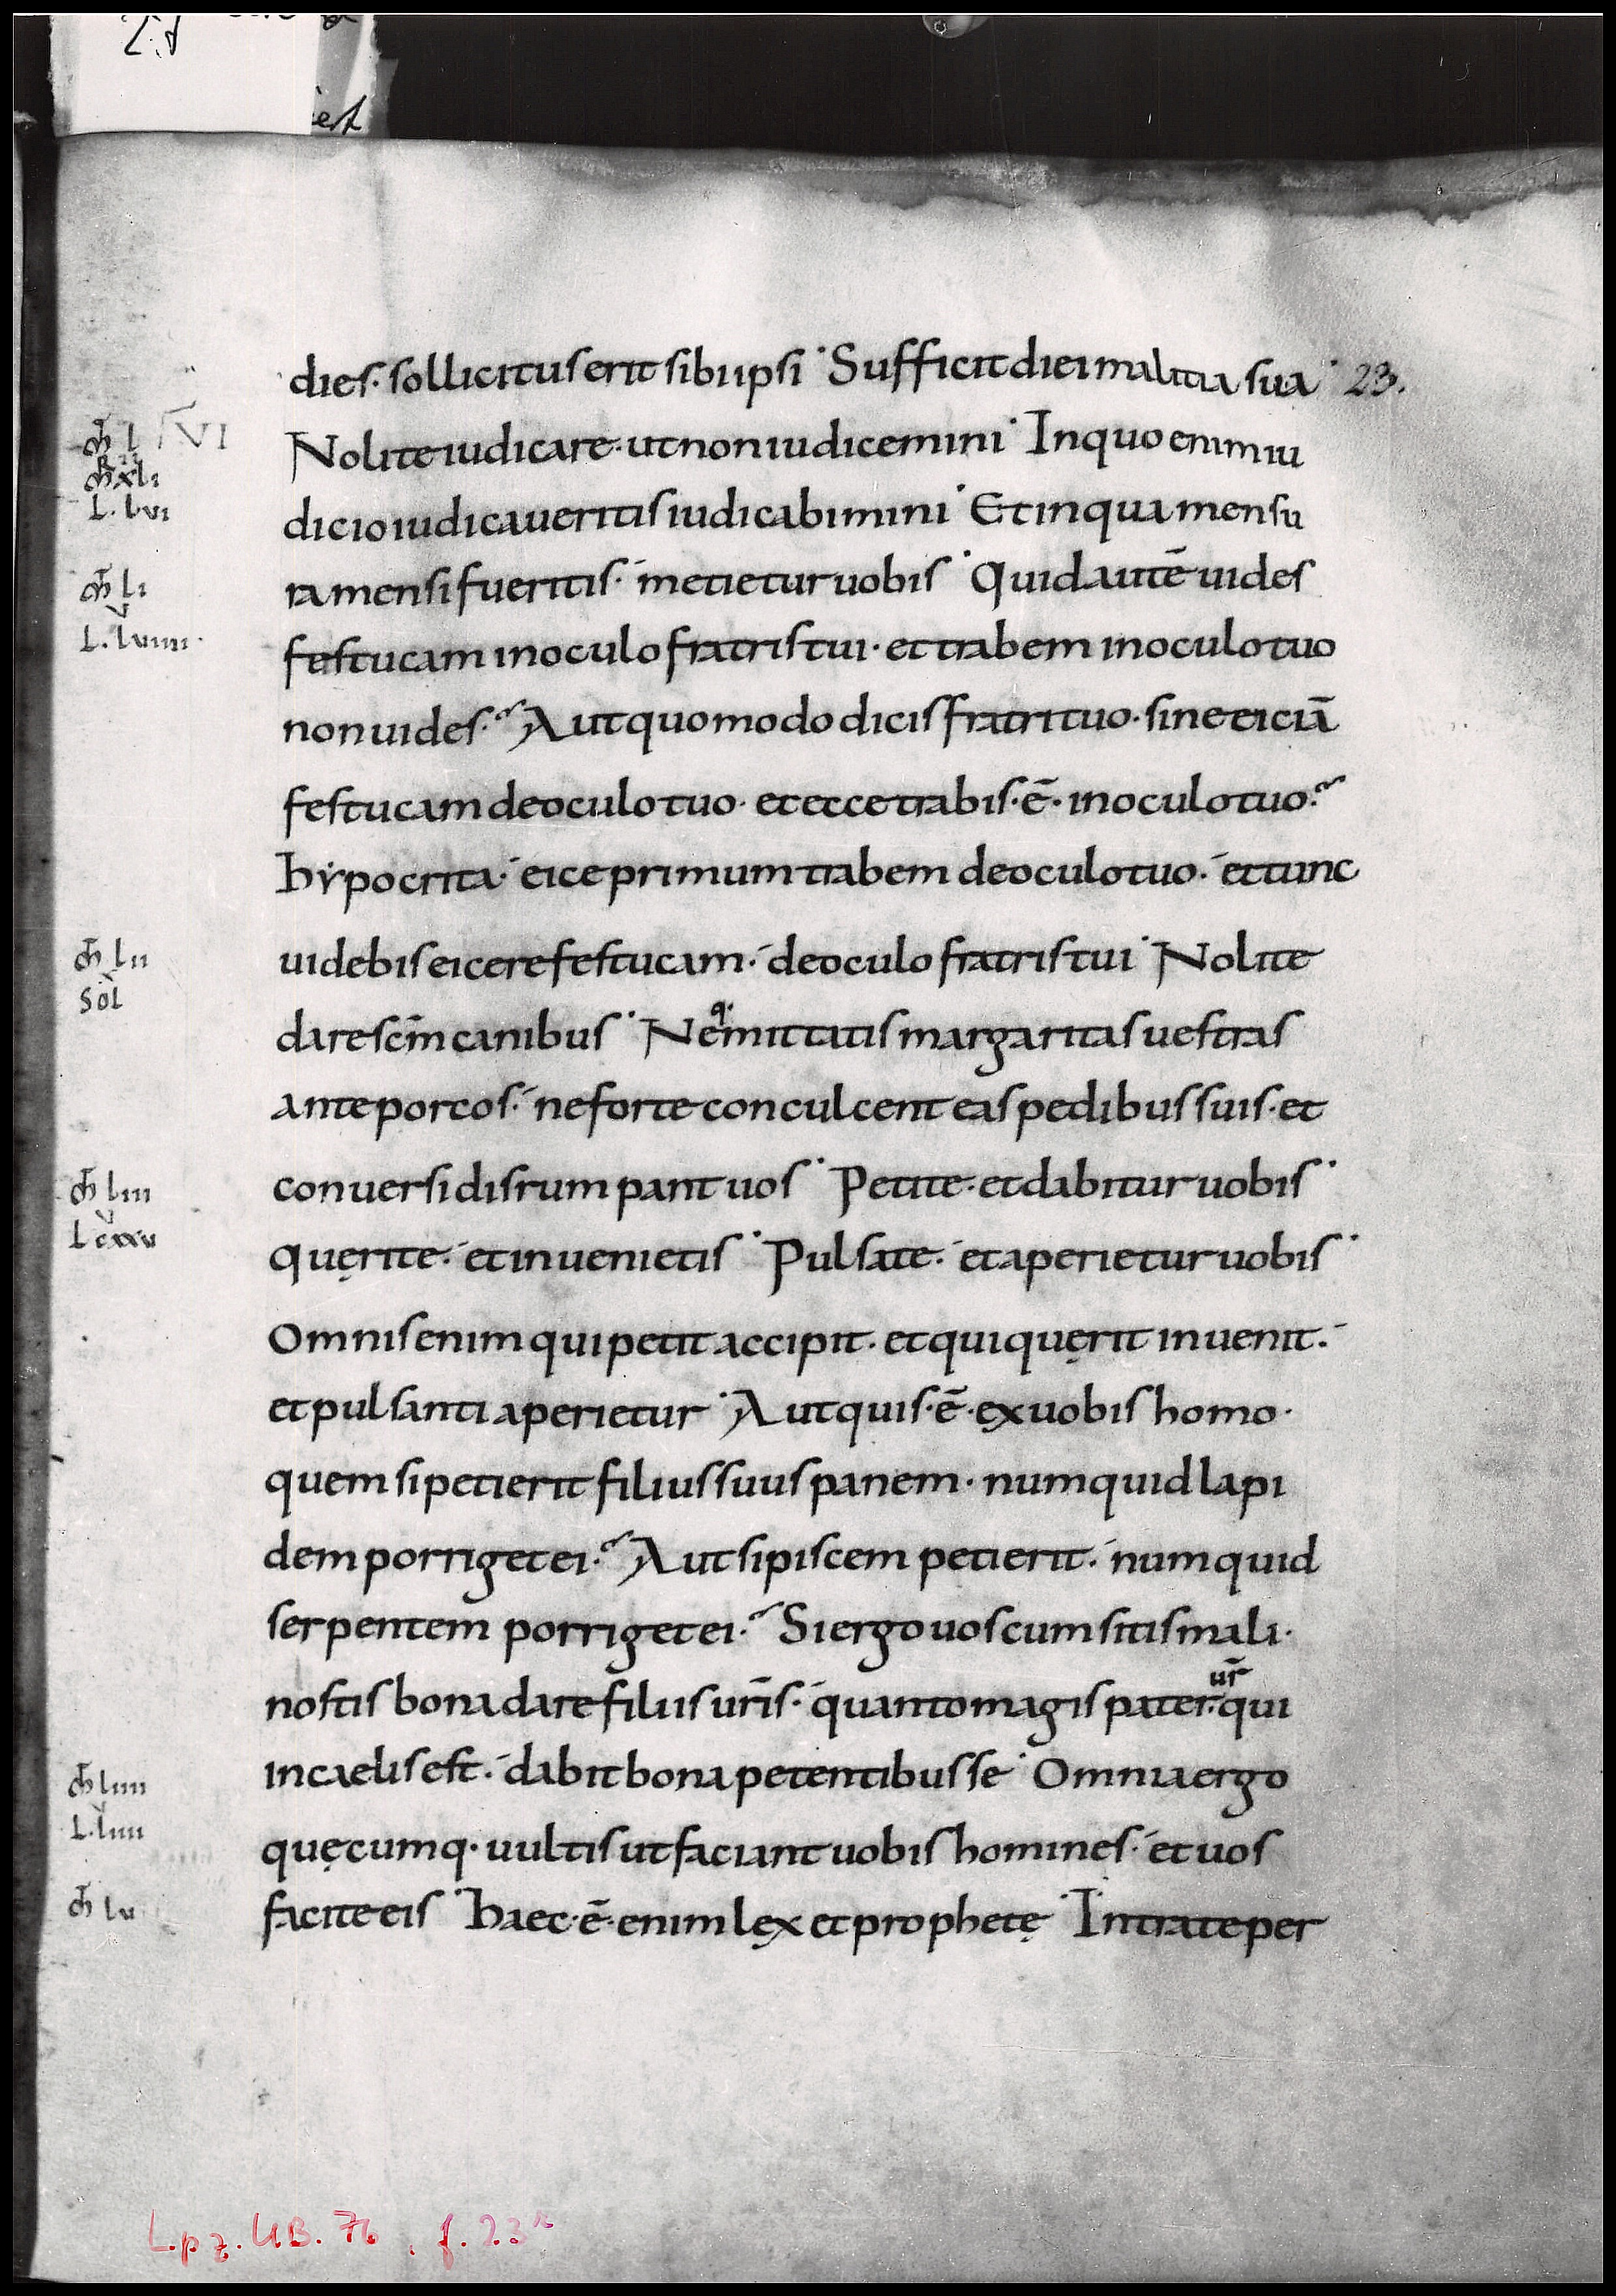 est
dies· sollicitus erit sibi ipsi · Sufficit diei malitia sua · 23.
VI
Nolite iudicare· ut non iudicemini · In quo enim iu
dicio iudicaueritis iudicabimini · Et in qua mensu
L. lvi
ra mensi fueritis· metietur uobis · Quid autē uides
m̄ li
L. lviiii·
festucam in oculo fratris tui· et trabem in oculo tuo
non uides· Aut quomodo dicis fratri tuo· sine eiciā
festucam de oculo tuo· et ecce trabis·ē· in oculo tuo·
hẏpocrita· eice primum trabem de oculo tuo· et tunc
m̄ lii
uidebis eicere festucam· de oculo fratris tui · Nolite
sol
dare scm̄ canibus · Neq· mittatis margaritas uestras
ante porcos· ne forte conculcent eas pedibus suis· et
m̄ liii
conuersi disrumpant uos · Petite· et dabitur uobis ·
L cxxv
quęrite· et inuenietis · Pulsate· et aperietur uobis ·
Omnis enim qui petit accipit· et qui quęrit inuenit·
et pulsanti aperietur · Aut quis·ē· ex uobis homo·
quem si petierit filius suus panem· numquid lapi
dem porriget ei· Aut si piscem petierit· numquid
serpentem porriget ei· Si ergo uos cum sitis mali·
nostis bona dare filiis ur̄is· quanto magis pater ur̄· qui
m̄ liiii
in caelis est· dabit bona petentibus se · Omnia ergo
L. liiii
quęcumq· uultis ut faciant uobis homines· et uos
m̄ lv
facite eis · Haec·ē· enim lex et prophetę · Intrate per
Lpz. UB. 76, f. 23r